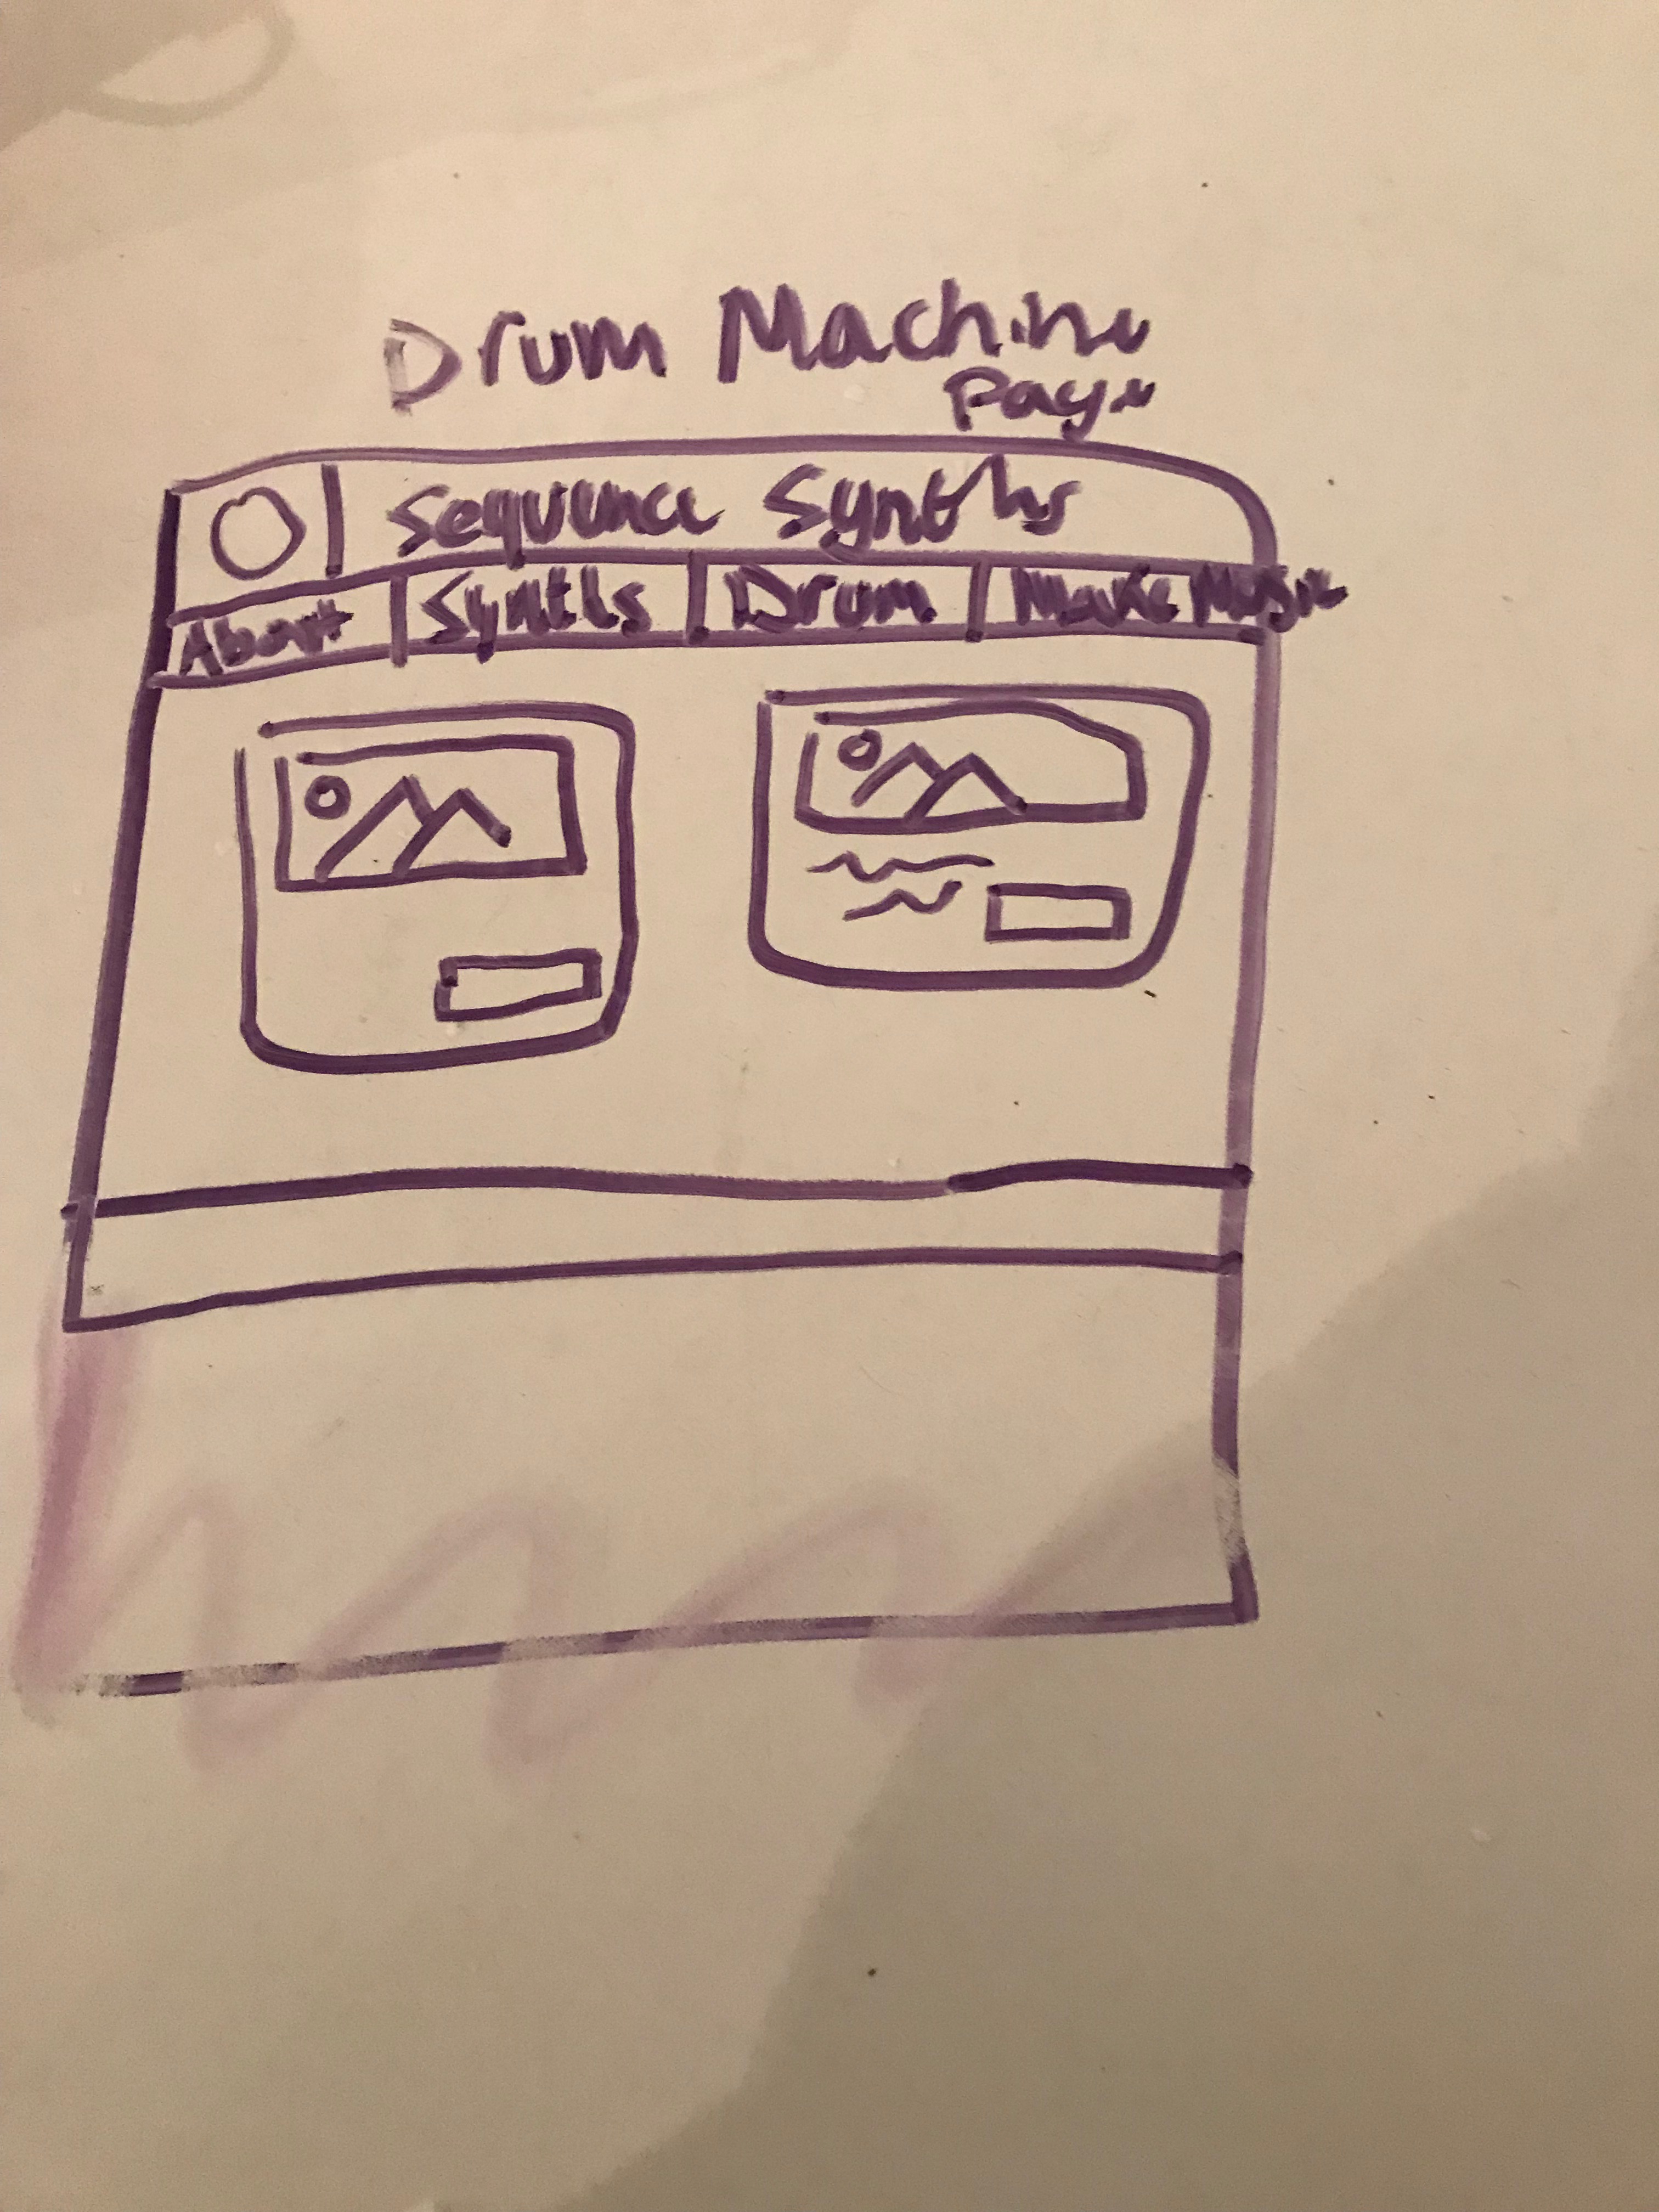 Drum Machine
Page
Sequence Synths
About Synths Drum Make Music